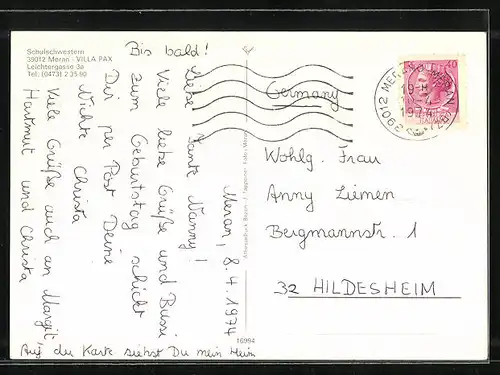 Schulschwestern
39012 Meran - VILLA PAX
Leichtergasse 3a
Tel: (0473) 2 35 80
Bis bald!
Meran, 8.4.1974
Liebe Tante Nanny!
Viele liebe Grüße und Bussi
zum Geburtstag schickt
Dir per Post Deine
Nichte Christa
Viele Grüße auch an Margit,
Hartmut und Christa
Auf der Karte siehst Du mein Heim
16994
Germany
39012 MERANO-MERAN
1974
40
Wohlg. Frau
Anny Liemen
Bergmannstr. 1
32 HILDESHEIM